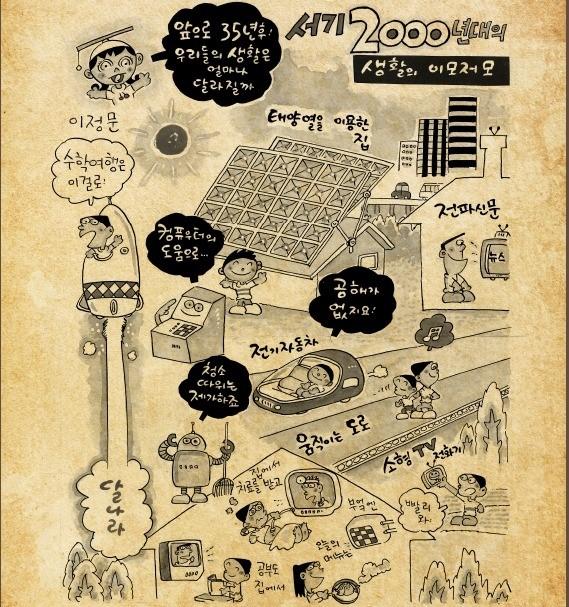 앞으로 35년후!
우리들의 생활은
얼마나
달라질까
서기 2000년대의
생활의 이모저모
이정문
태양열을 이용한
집
수학여행은
이걸로!
전파신문
뉴스
컴퓨우터의
도움으로...
공해가
없지요!
전기자동차
청소
따위는
제가하죠
움직이는 도로
소형 TV 전화기
빨리
와!
집에서
치료를 받고
부엌엔
오늘의
메뉴는
공부도
집에서
달나라